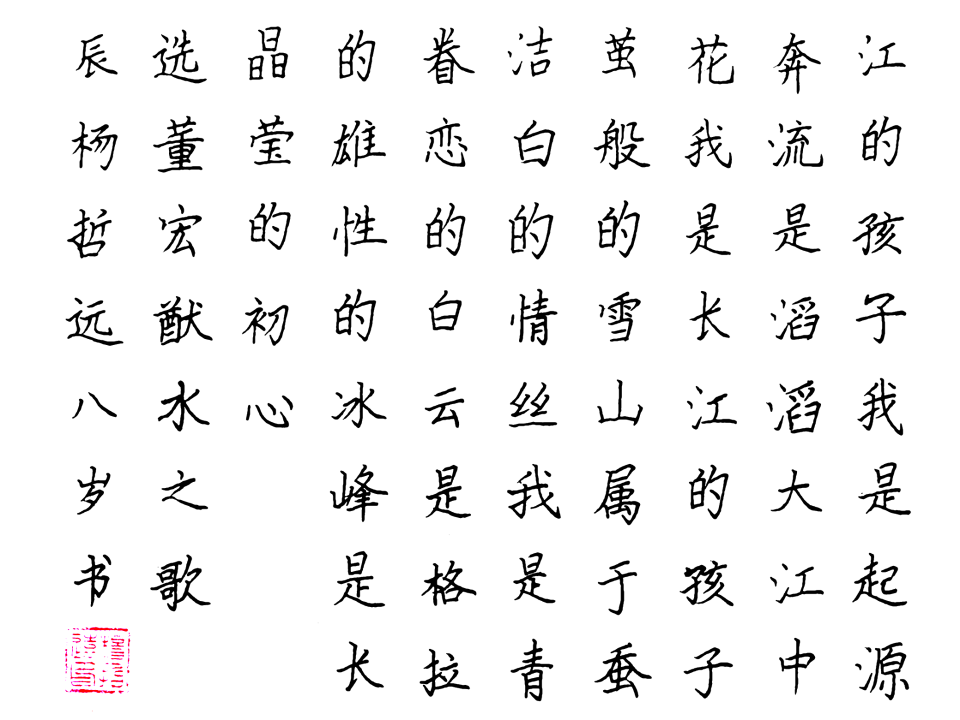 江的孩子我是起源
奔流是滔滔大江中
花我是长江的孩子
茧般的雪山属于蚕
洁白的情丝我是青
眷恋的白云是格拉
的雄性的冰峰是长
晶莹的初心
选董宏猷水之歌
辰杨哲远八岁书